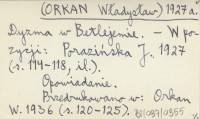 (ORKAN Władysław) 1927 a.
Dyzma w Betlejemie. – W po-
zycji: Porazińska J. 1927
(s. 114-118, il.).
Opowiadanie.
Przedrukowano w: Orkan
W. 1936 (s. 120-125).